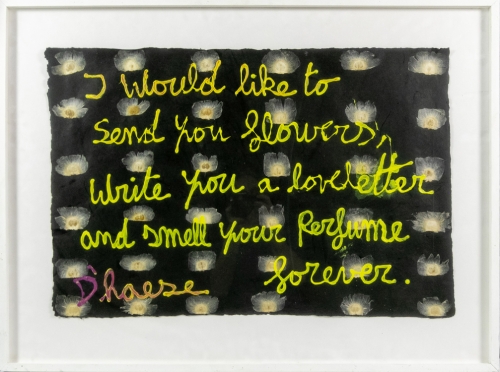 I would like to
send you flowers,
write you a loveletter
and smell your Perfume
D'haese forever.